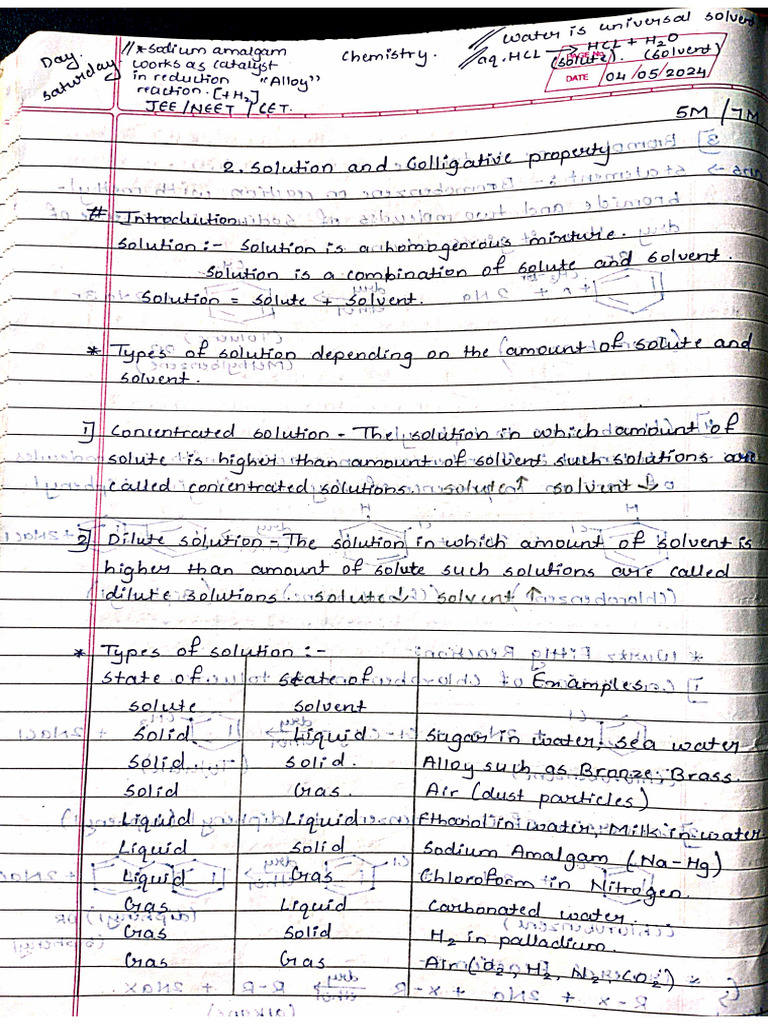 Day.
Saturday
//* sodium amalgam
works as catalyst
in reduction "Alloy"
reaction. [+H2]
JEE/NEET / CET.
Chemistry.
// Water is universal solvent
// aq. HCL → HCL + H2O
(solute). (solvent)
PAGE No.
DATE 04/05/2024
5M / 7M
2. Solution and Colligative property
# Introduction
Solution :- Solution is a homogenous mixture.
Solution is a combination of solute and solvent.
Solution = solute + solvent.
* Types of solution depending on the amount of solute and
solvent.
1] Concentrated solution - The solution in which amount of
solute is higher than amount of solvent such solutions are
called concentrated solutions. solute ↑ solvent ↓
2] Dilute solution - The solution in which amount of solvent is
higher than amount of solute such solutions are called
dilute solutions. solute ↓ solvent ↑
* Types of solution :-
State of State of Examples.
solute solvent
Solid Liquid Sugar in water, sea water
Solid. Solid. Alloy such as Bronze, Brass.
Solid Gas. Air (dust particles)
Liquid Liquid Ethanol in water, Milk in water.
Liquid Solid Sodium Amalgam (Na-Hg)
Liquid Gas Chloroform in Nitrogen.
Gas Liquid Carbonated water.
Gas Solid H2 in palladium.
Gas Gas Air (O2, H2, N2, CO2)